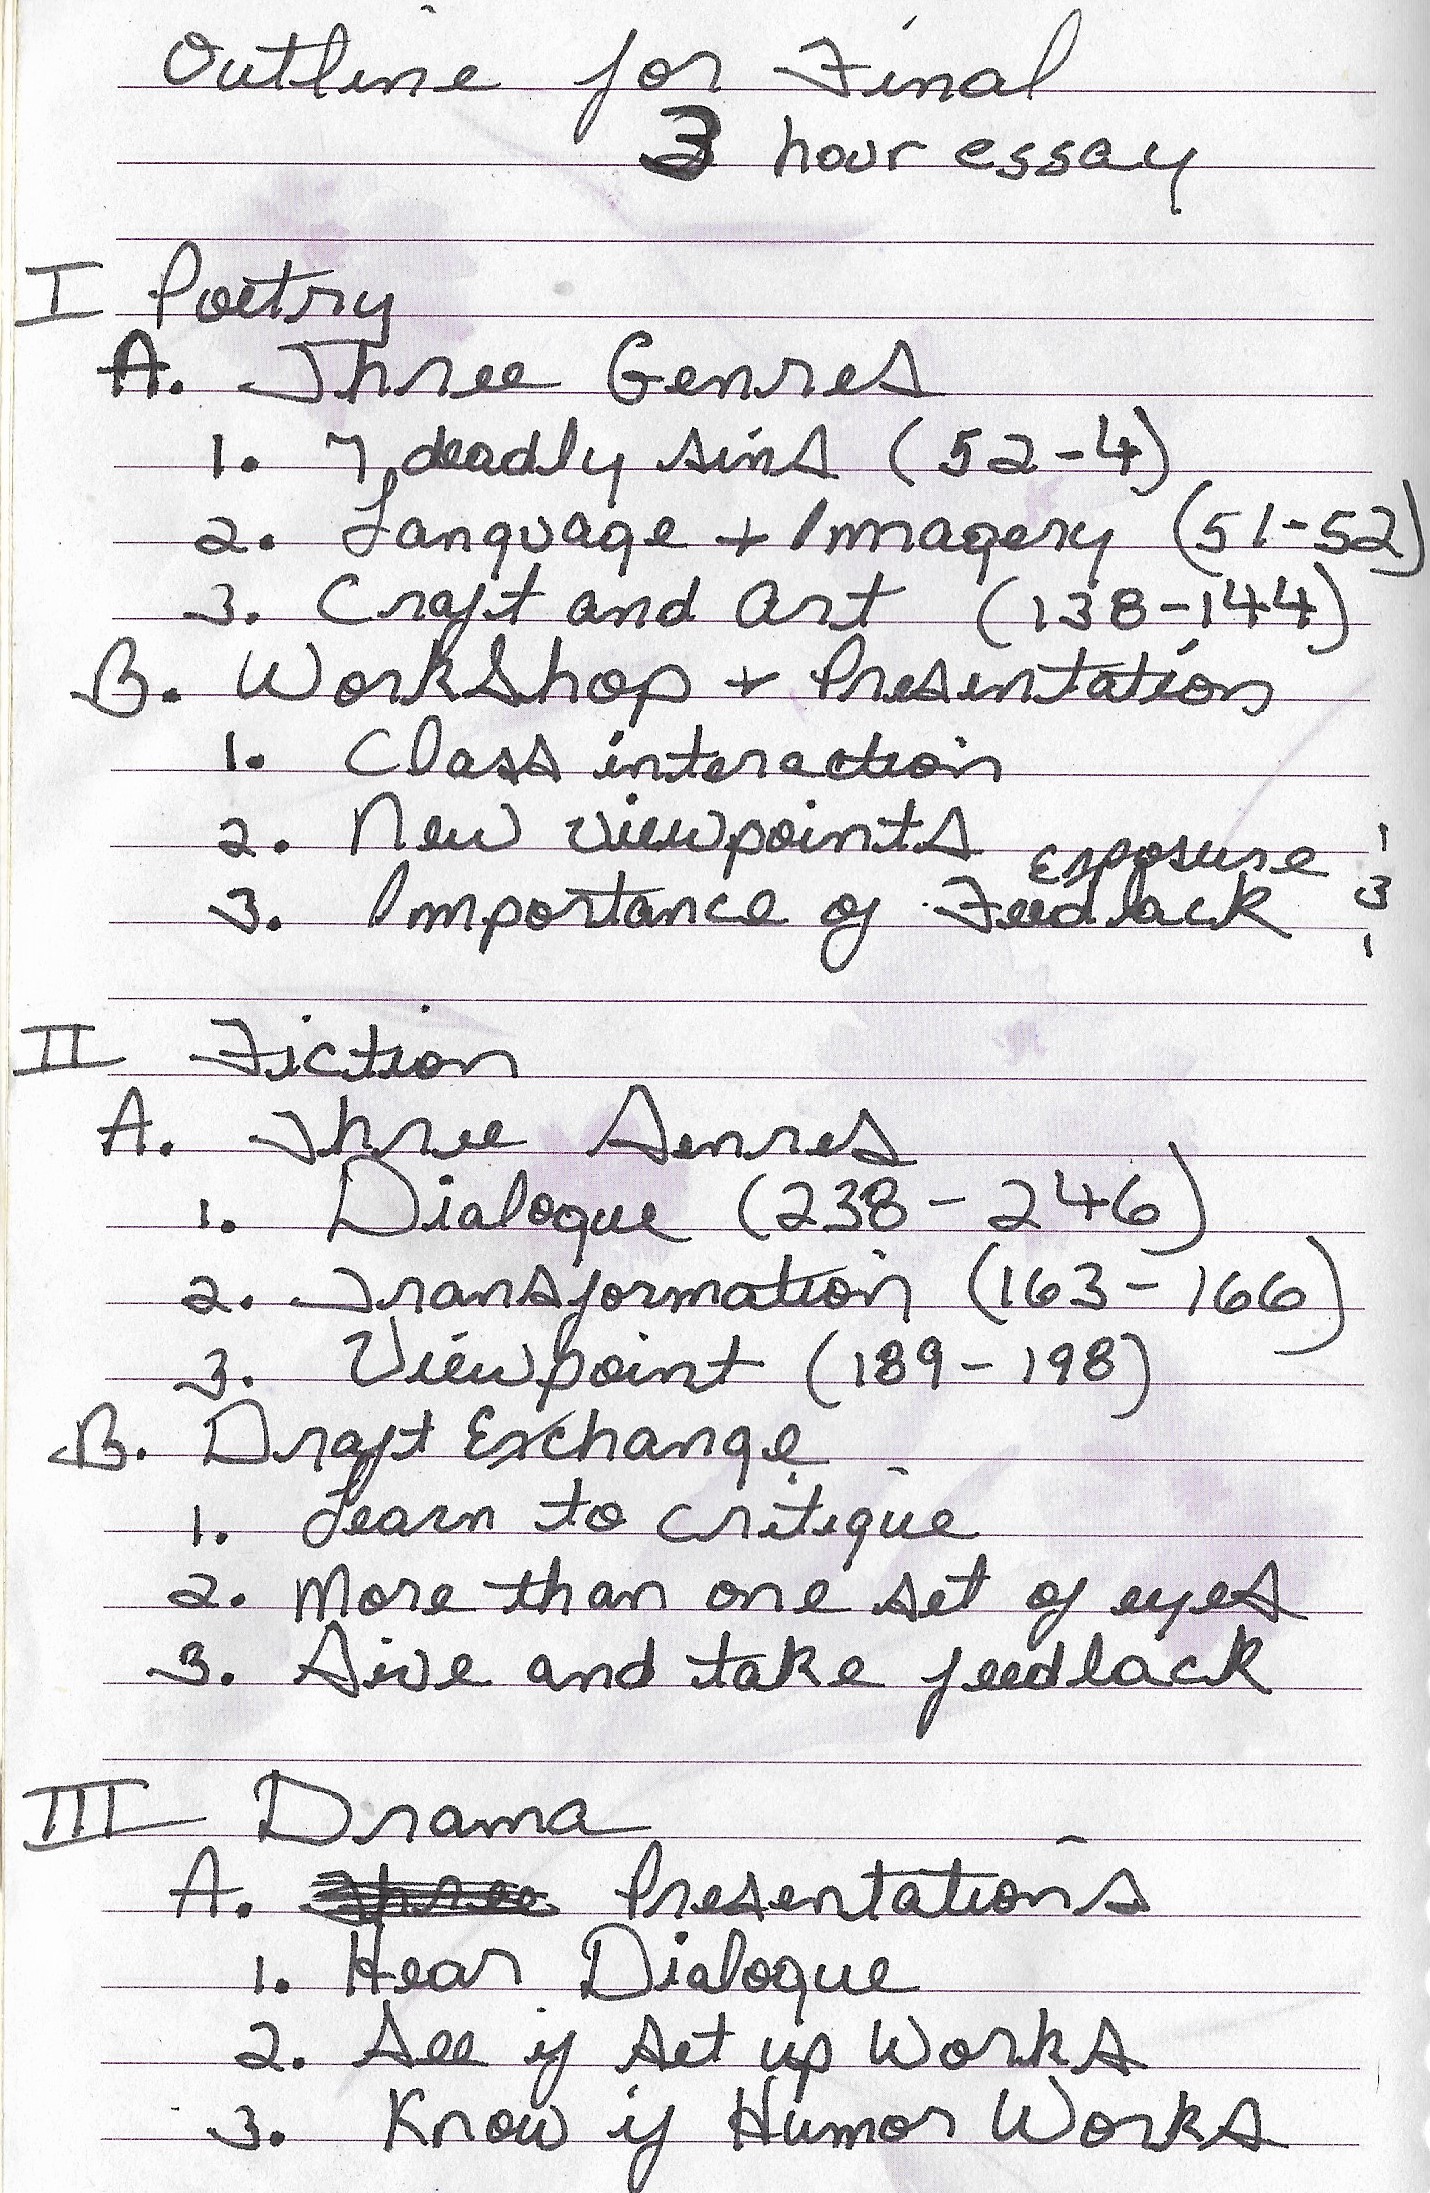 Outline for Final
3 hour essay
I Poetry
A. Three Genres
1. 7 deadly sins (52-4)
2. Language + Imagery (51-52)
3. Craft and Art (138-144)
B. Workshop + Presentation
1. Class interaction
2. New viewpoints exposure
3. Importance of Feedback
1
3
1
II Fiction
A. Three Genres
1. Dialogue (238-246)
2. Transformation (163-166)
3. Viewpoint (189-198)
B. Draft Exchange
1. Learn to critique
2. More than one set of eyes
3. Give and take feedback
III Drama
A. Three Presentations
1. Hear Dialogue
2. See if set up Works
3. Know if Humor Works